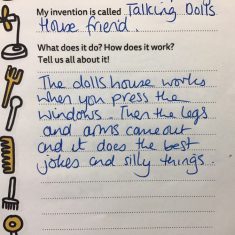 My invention is called Talking Dolls
House friend.
What does it do? How does it work?
Tell us all about it!
The dolls house works
when you press the
windows. Then the legs
and arms came out
and it does the best
jokes and silly things.